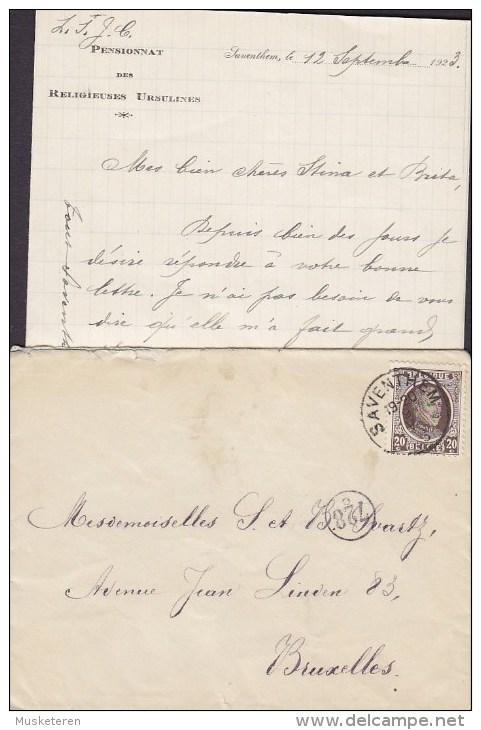 L. S. J. C.
PENSIONNAT
DES
RELIGIEUSES URSULINES
Saventhem, le 12 Septembre 1923.
Mes bien chères Stina et Breta,
Depuis bien des jours je
désire répondre à votre bonne
lettre. Je n'ai pas besoin de vous
dire qu'elle m'a fait grand,
Tout Saventh
SAVENTHEM
BELGIQUE
20 20
BELGIË
Mesdemoiselles S. et B. Svartz,
Avenue Jean Linden 83,
Bruxelles.
© Musketeren
delcampe.net